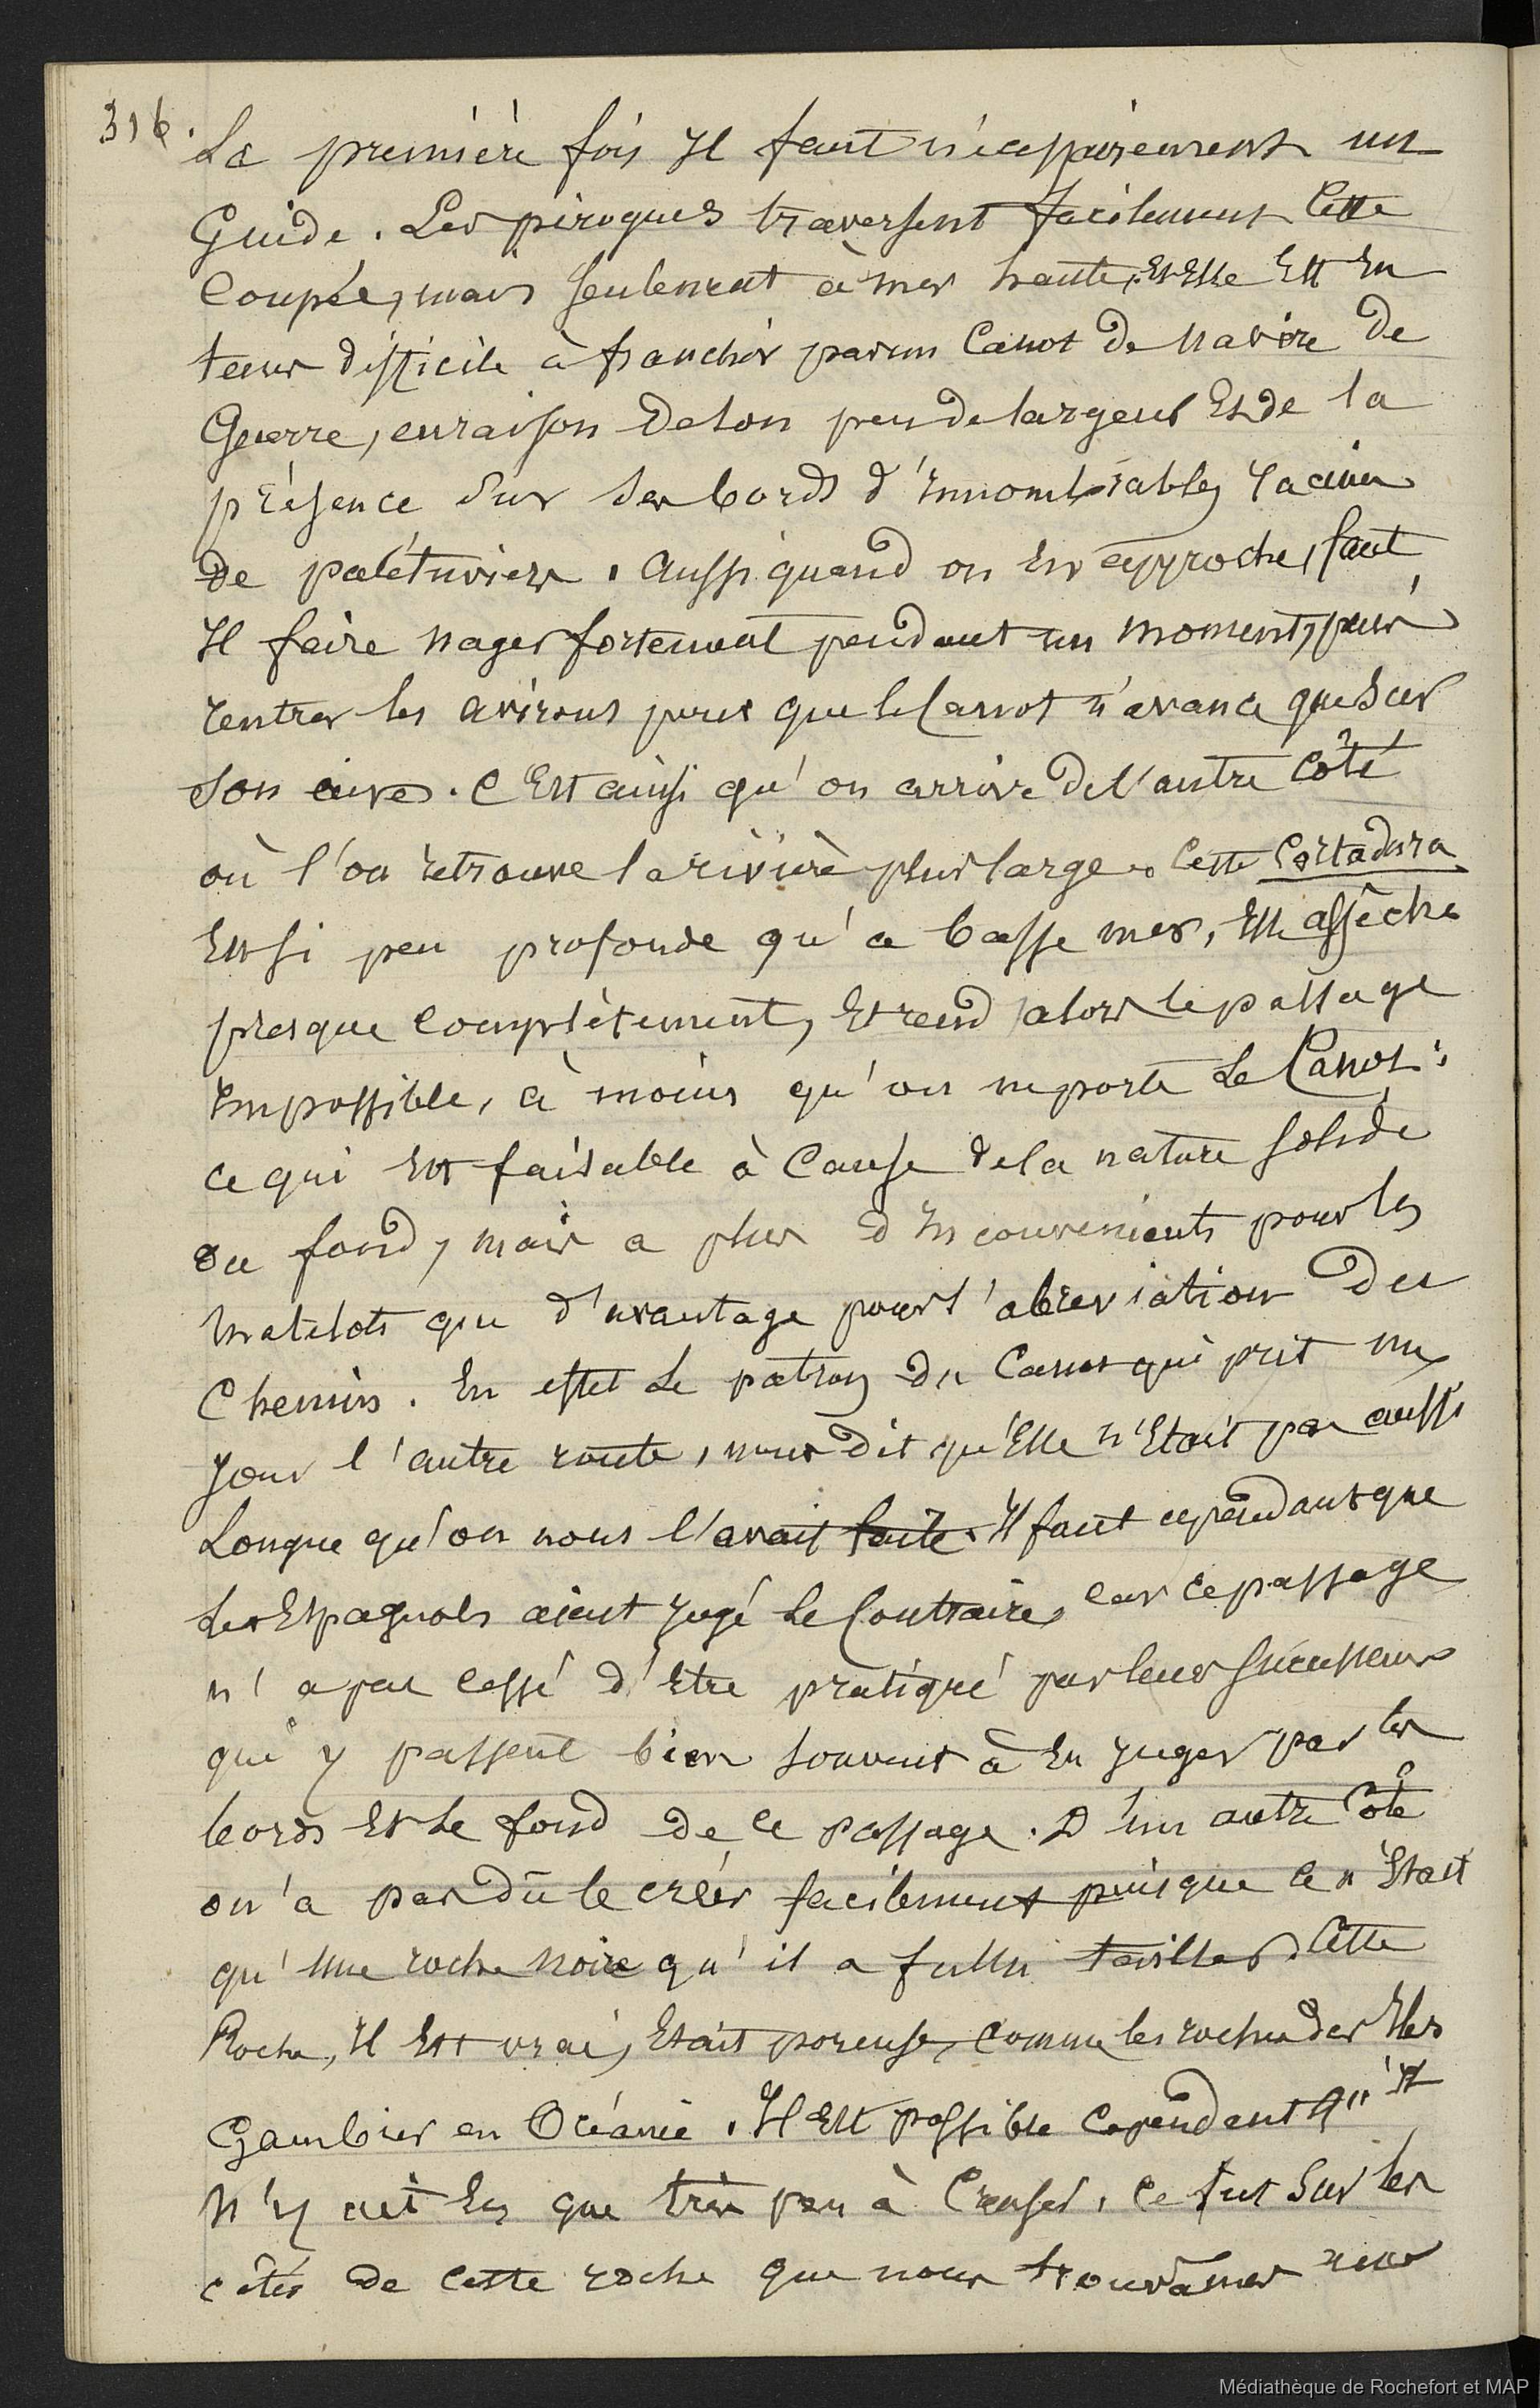 316.
La première fois Il faut nécessairement un
Guide. Les pirogues traversent facilement Cette
Coupée, mais seulement à mer haute, Et Elle Est En
tous difficile à franchir par un Canot de Navire De
Guerre, en raison de son peu de largeur Et de la
présence sur ses bords d'Innombrables racines
de palétuviers. Aussi quand on En approche, faut
Il faire nager fortement pendant un moment, puis
rentrer les avirons pour que le Canot n'avance que sur
son aire. C'Est ainsi qu'on arrive de l'autre Côté
où l'on retrouve la rivière plus large. Cette Cortadura
Est si peu profonde qu'a basse mer, Elle assèche
presque complètement, Et rend alors le passage
Impossible, à moins qu'on ne porte Le Canot;
ce qui Est faisable à Cause de la nature solide
du fond, mais a plus d'Inconvenients pour les
Matelots que d'avantage pour l'abreviation du
Chemin. En effet Le patron du Canot qui prit un
Jour l'autre route, nous dit qu'Elle n'Etait pas aussi
Longue qu'on nous l'avait faite. Il faut cependant que
Les Espagnols aient Jugé Le Contraire, car ce passage
n'a pas cessé d'Etre pratiqué par leurs successeurs
qui y passent bien souvent à En Juger par les
bords Et Le fond de ce passage. D'un autre Côté
on'a pas dû le créér facilement puisque ce n'Etait
qu'une roche noire qu'il a fallu tailler. Cette
Roche, Il Est vrai, Etait poreuse, comme les roches des Iles
Gambier en Océanie. Il Est possible cependant qu'il
N'y ait Eu que très peu à Creuser. Ce fut Sur les
côtés de cette roche que nous trouvâmes une